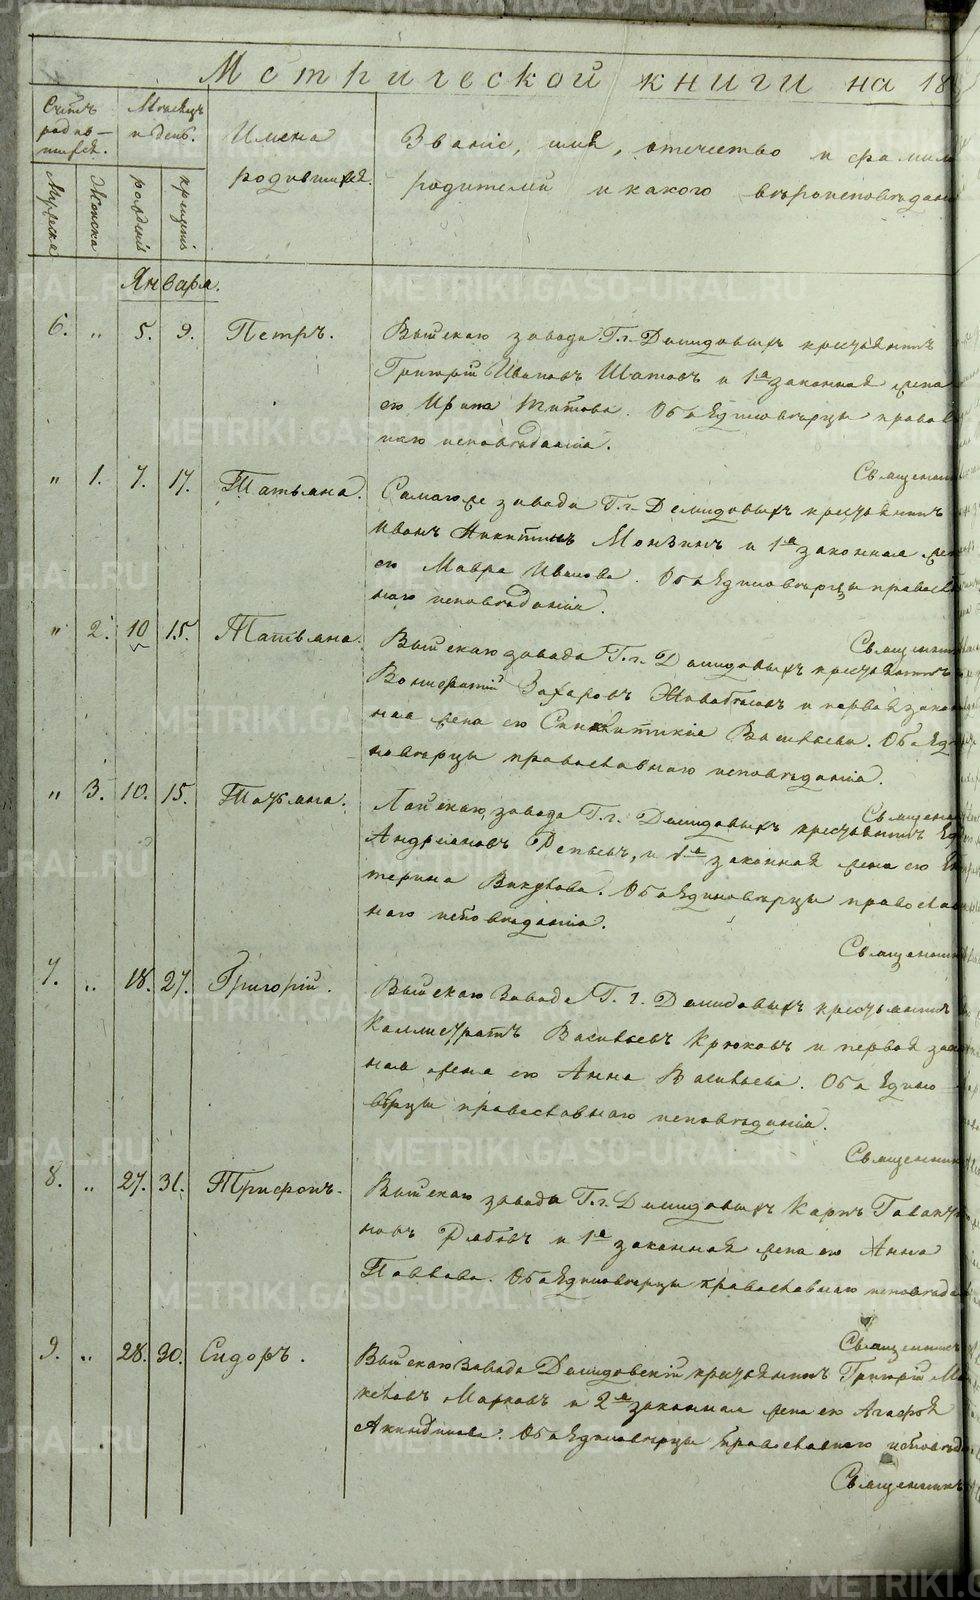 Метрической книги на 18
Счетъ родив-шихся.
Мѣсяцъ и день.
Имена родившихся.
Званіе, имя, отчество и фамилія
родителей и какого вѣроисповѣданія
Мужеска
Женска
рожденія
крещенія
Января.
6. „ 5. 9. Петръ.
Выйскаго завода Г.г. Демидовыхъ крестьянинъ
Григорій Ивановъ Шатовъ и 1я законная жена
его Ирина Титова. Оба Единовѣрцы православ
наго исповѣданія.
Священникъ
„ 1. 7. 17. Татьяна.
Самого же завода Г.г. Демидовыхъ крестьянинъ
Иванъ Никитинъ Монзинъ и 1я законная жена
его Мавра Иванова. Оба Единовѣрцы православ
наго исповѣданія.
Священникъ
„ 2. 10 15. Татьяна.
Выйскаго завода Г.г. Демидовыхъ крестьянинъ
Вонифатій Захаровъ и первая закон
ная жена его Синклитикія Васильева. Оба Еди
новѣрцы православнаго исповѣданія.
Священникъ
„ 3. 10. 15. Татьяна.
Лайскаго завода Г.г. Демидовыхъ крестьянинъ
Андріановъ Репьевъ, и 1я законная жена его Ека
терина Викулова. Оба Единовѣрцы православ
наго исповѣданія.
Священникъ
7. „ 18. 27. Григорій.
Выйскаго Завода Г.г. Демидовыхъ крестьянинъ
Каллистратъ Васильевъ Крюковъ и первая закон
ная жена его Анна Васильева. Оба Едино
вѣрцы православнаго исповѣданія.
Священникъ
8. „ 27. 31. Трифонъ.
Выйскаго завода Г.г. Демидовыхъ Карпъ
новъ Рябовъ и 1я законная жена его Анна
Павлова. Оба Единовѣрцы православнаго исповѣда
Священникъ
9. „ 28. 30. Сидоръ.
Выйскаго Завода Демидовскій крестьянинъ Григорій Мо
кеевъ Марковъ и 2я законная жена его Агафья
Акиндинова. Оба Единовѣрцы Православнаго исповѣд
Священникъ
METRIKI.GASO-URAL.RU